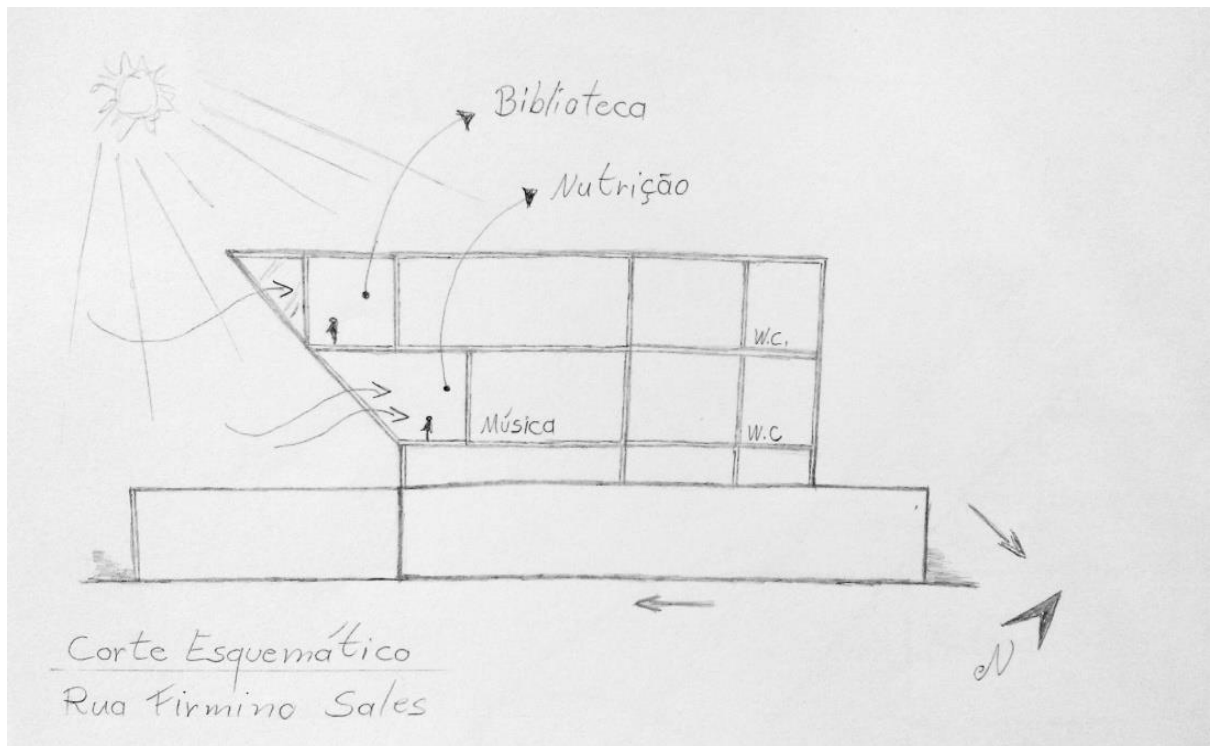 Biblioteca
Nutrição
W.C.
Música
W.C
N
Corte Esquemático
Rua Firmino Sales